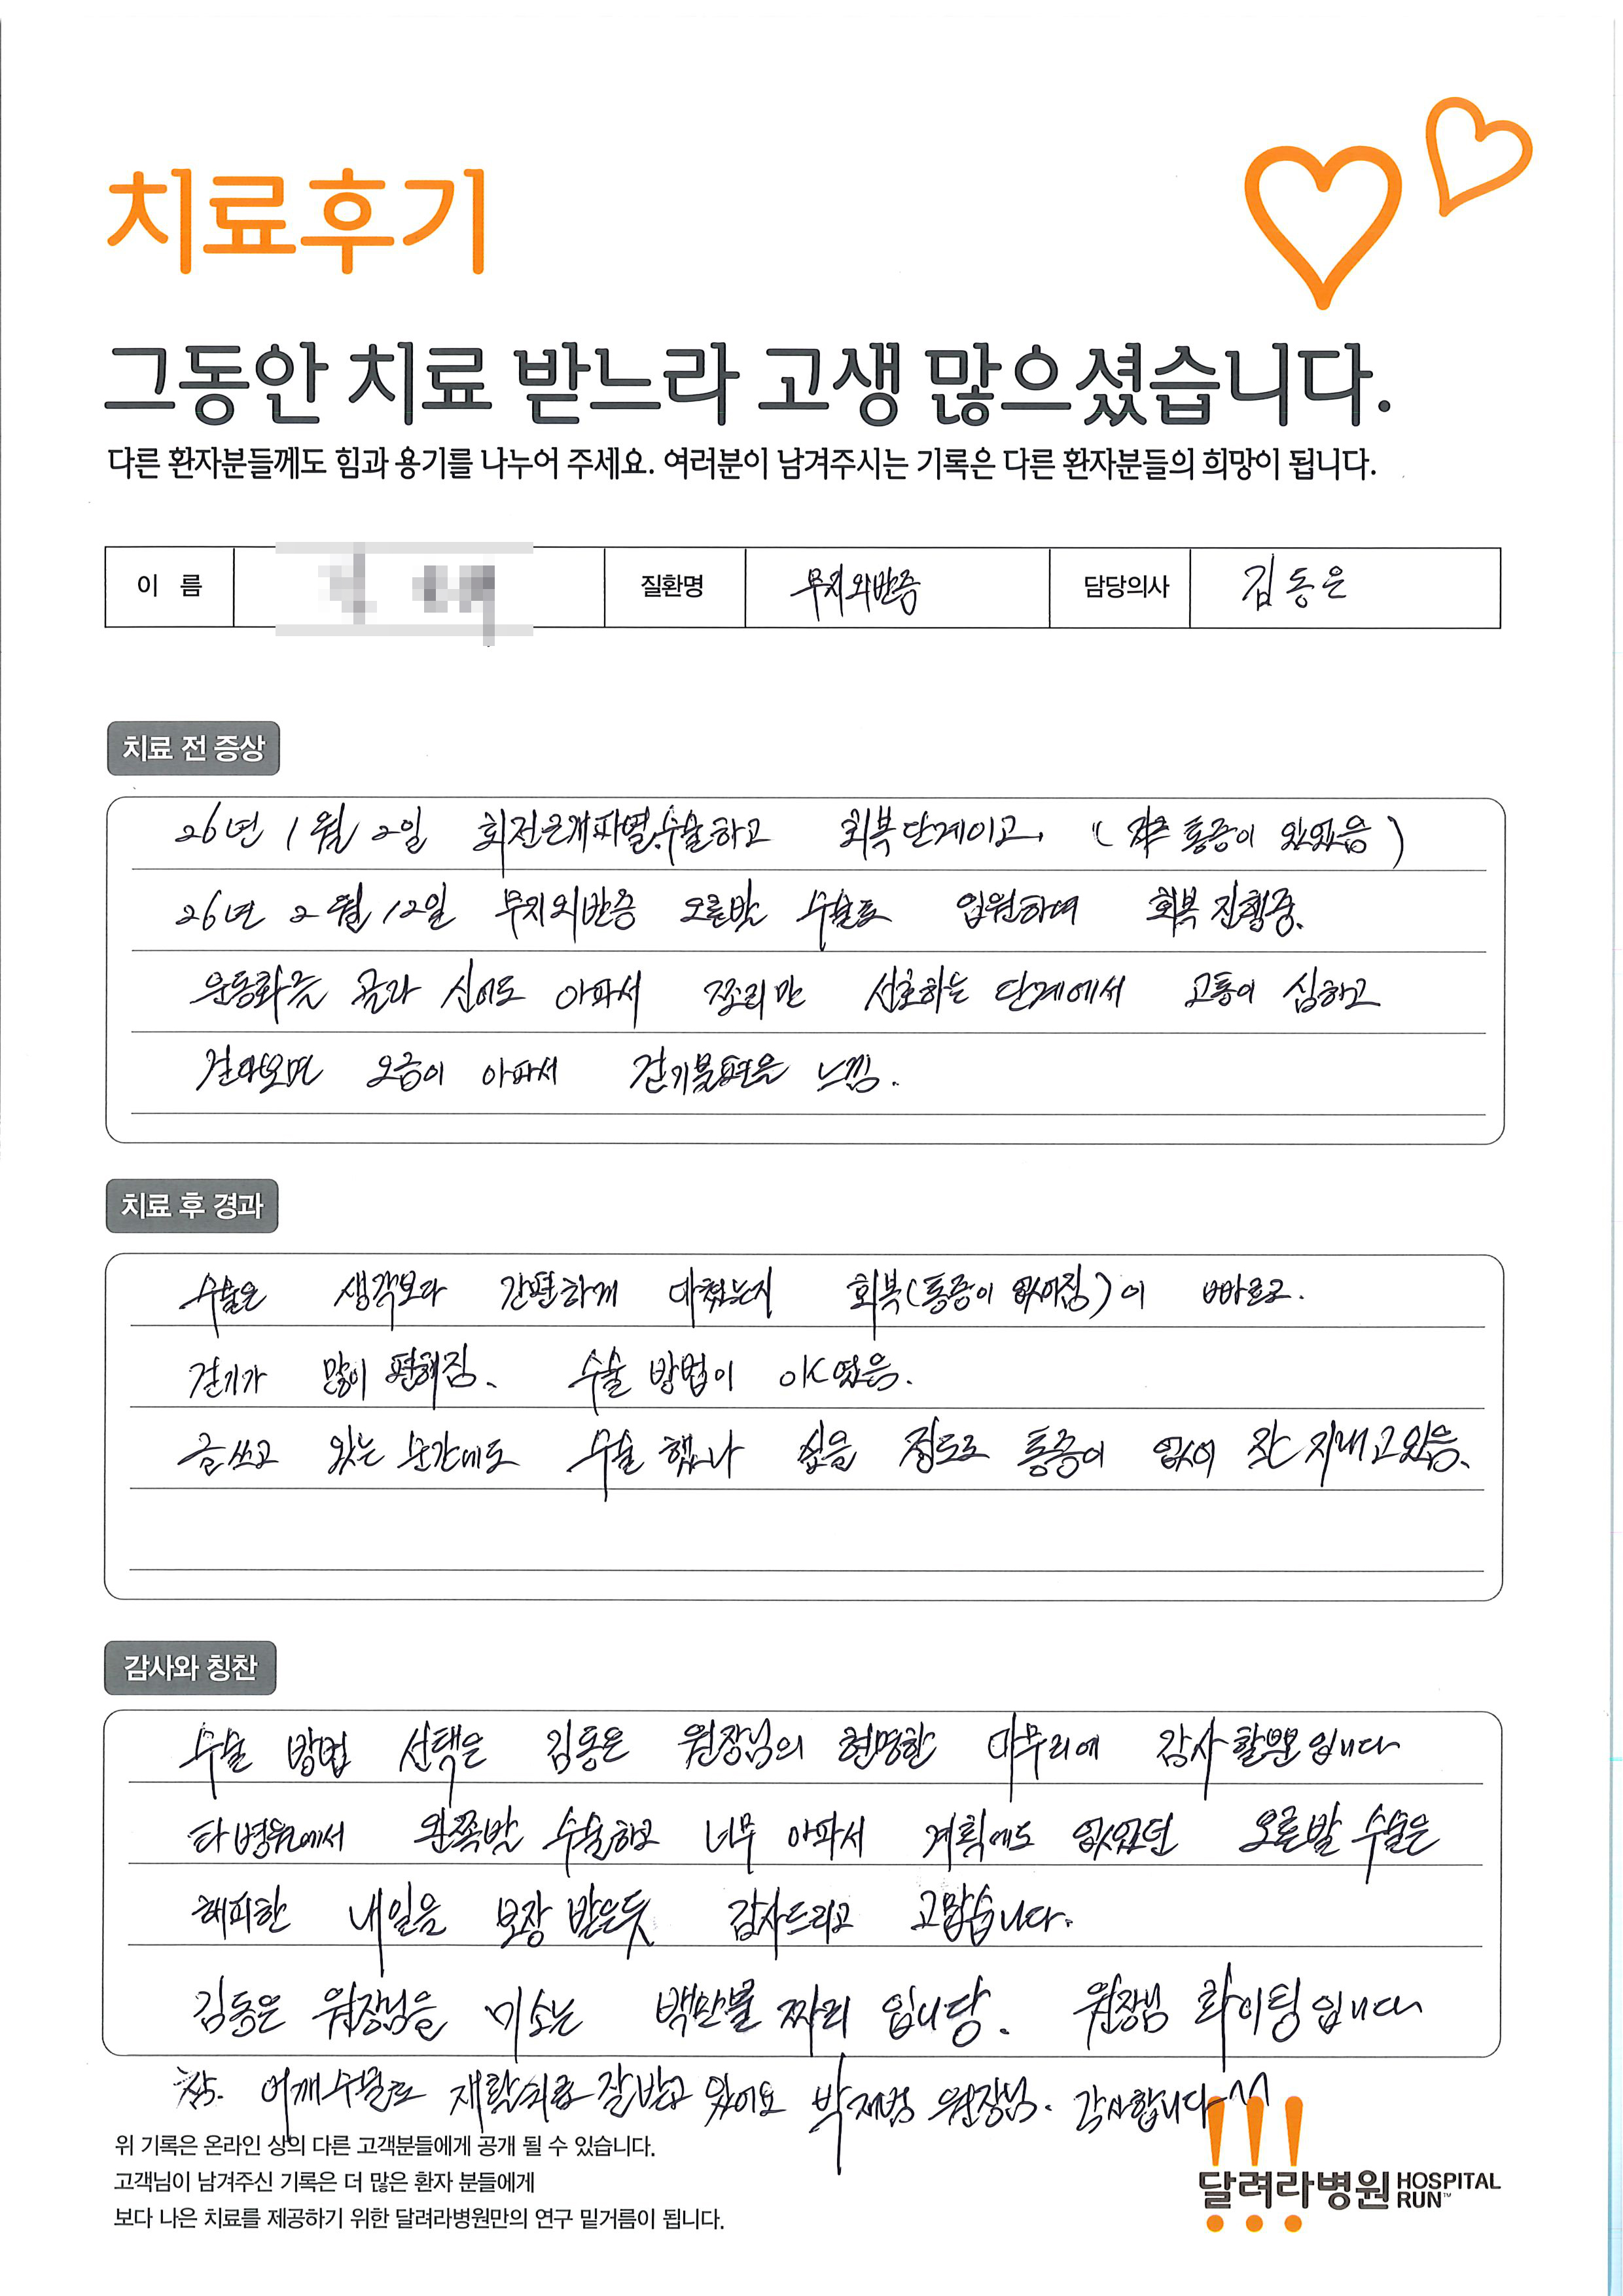 치료후기
그동안 치료 받느라 고생 많으셨습니다.
다른 환자분들께도 힘과 용기를 나누어 주세요. 여러분이 남겨주시는 기록은 다른 환자분들의 희망이 됩니다.
이 름 질환명 무지외반증 담당의사 김동은
치료 전 증상
26년 1월 2일 회전근개파열.수술하고 회복단계이고, ( 통증이 있었음)
26년 2월 12일 무지외반증 오른발 수술로 입원하며 회복 진행중.
운동화를 골라 신어도 아파서 쪼리만 선호하는 단계에서 고통이 심하고
걷다보면 오금이 아파서 걷기불편을 느낌.
치료 후 경과
수술은 생각보다 간편하게 마쳤는지 회복(통증이 없어짐)이 빠르고.
걷기가 많이 편해짐. 수술 방법이 OK였음.
글쓰고 있는 순간에도 수술 했나 싶을 정도로 통증이 없이 잘 지내고있음.
감사와 칭찬
수술 방법 선택은 김동은 원장님의 현명한 마무리에 감사할뿐입니다
타병원에서 왼쪽발 수술하고 너무 아파서 계획에도 없었던 오른발 수술은
해피한 내일을 보장 받은듯 감사드리고 고맙습니다.
김동은 원장님을 미소는 백만불 짜리 입니당. 원장님 화이팅입니다
어깨수술도 재활치료 잘받고 있어요 박재범 원장님. 감사합니다~^^
위 기록은 온라인 상의 다른 고객분들에게 공개 될 수 있습니다.
고객님이 남겨주신 기록은 더 많은 환자 분들에게
보다 나은 치료를 제공하기 위한 달려라병원만의 연구 밑거름이 됩니다.
달려라병원 HOSPITAL RUN™